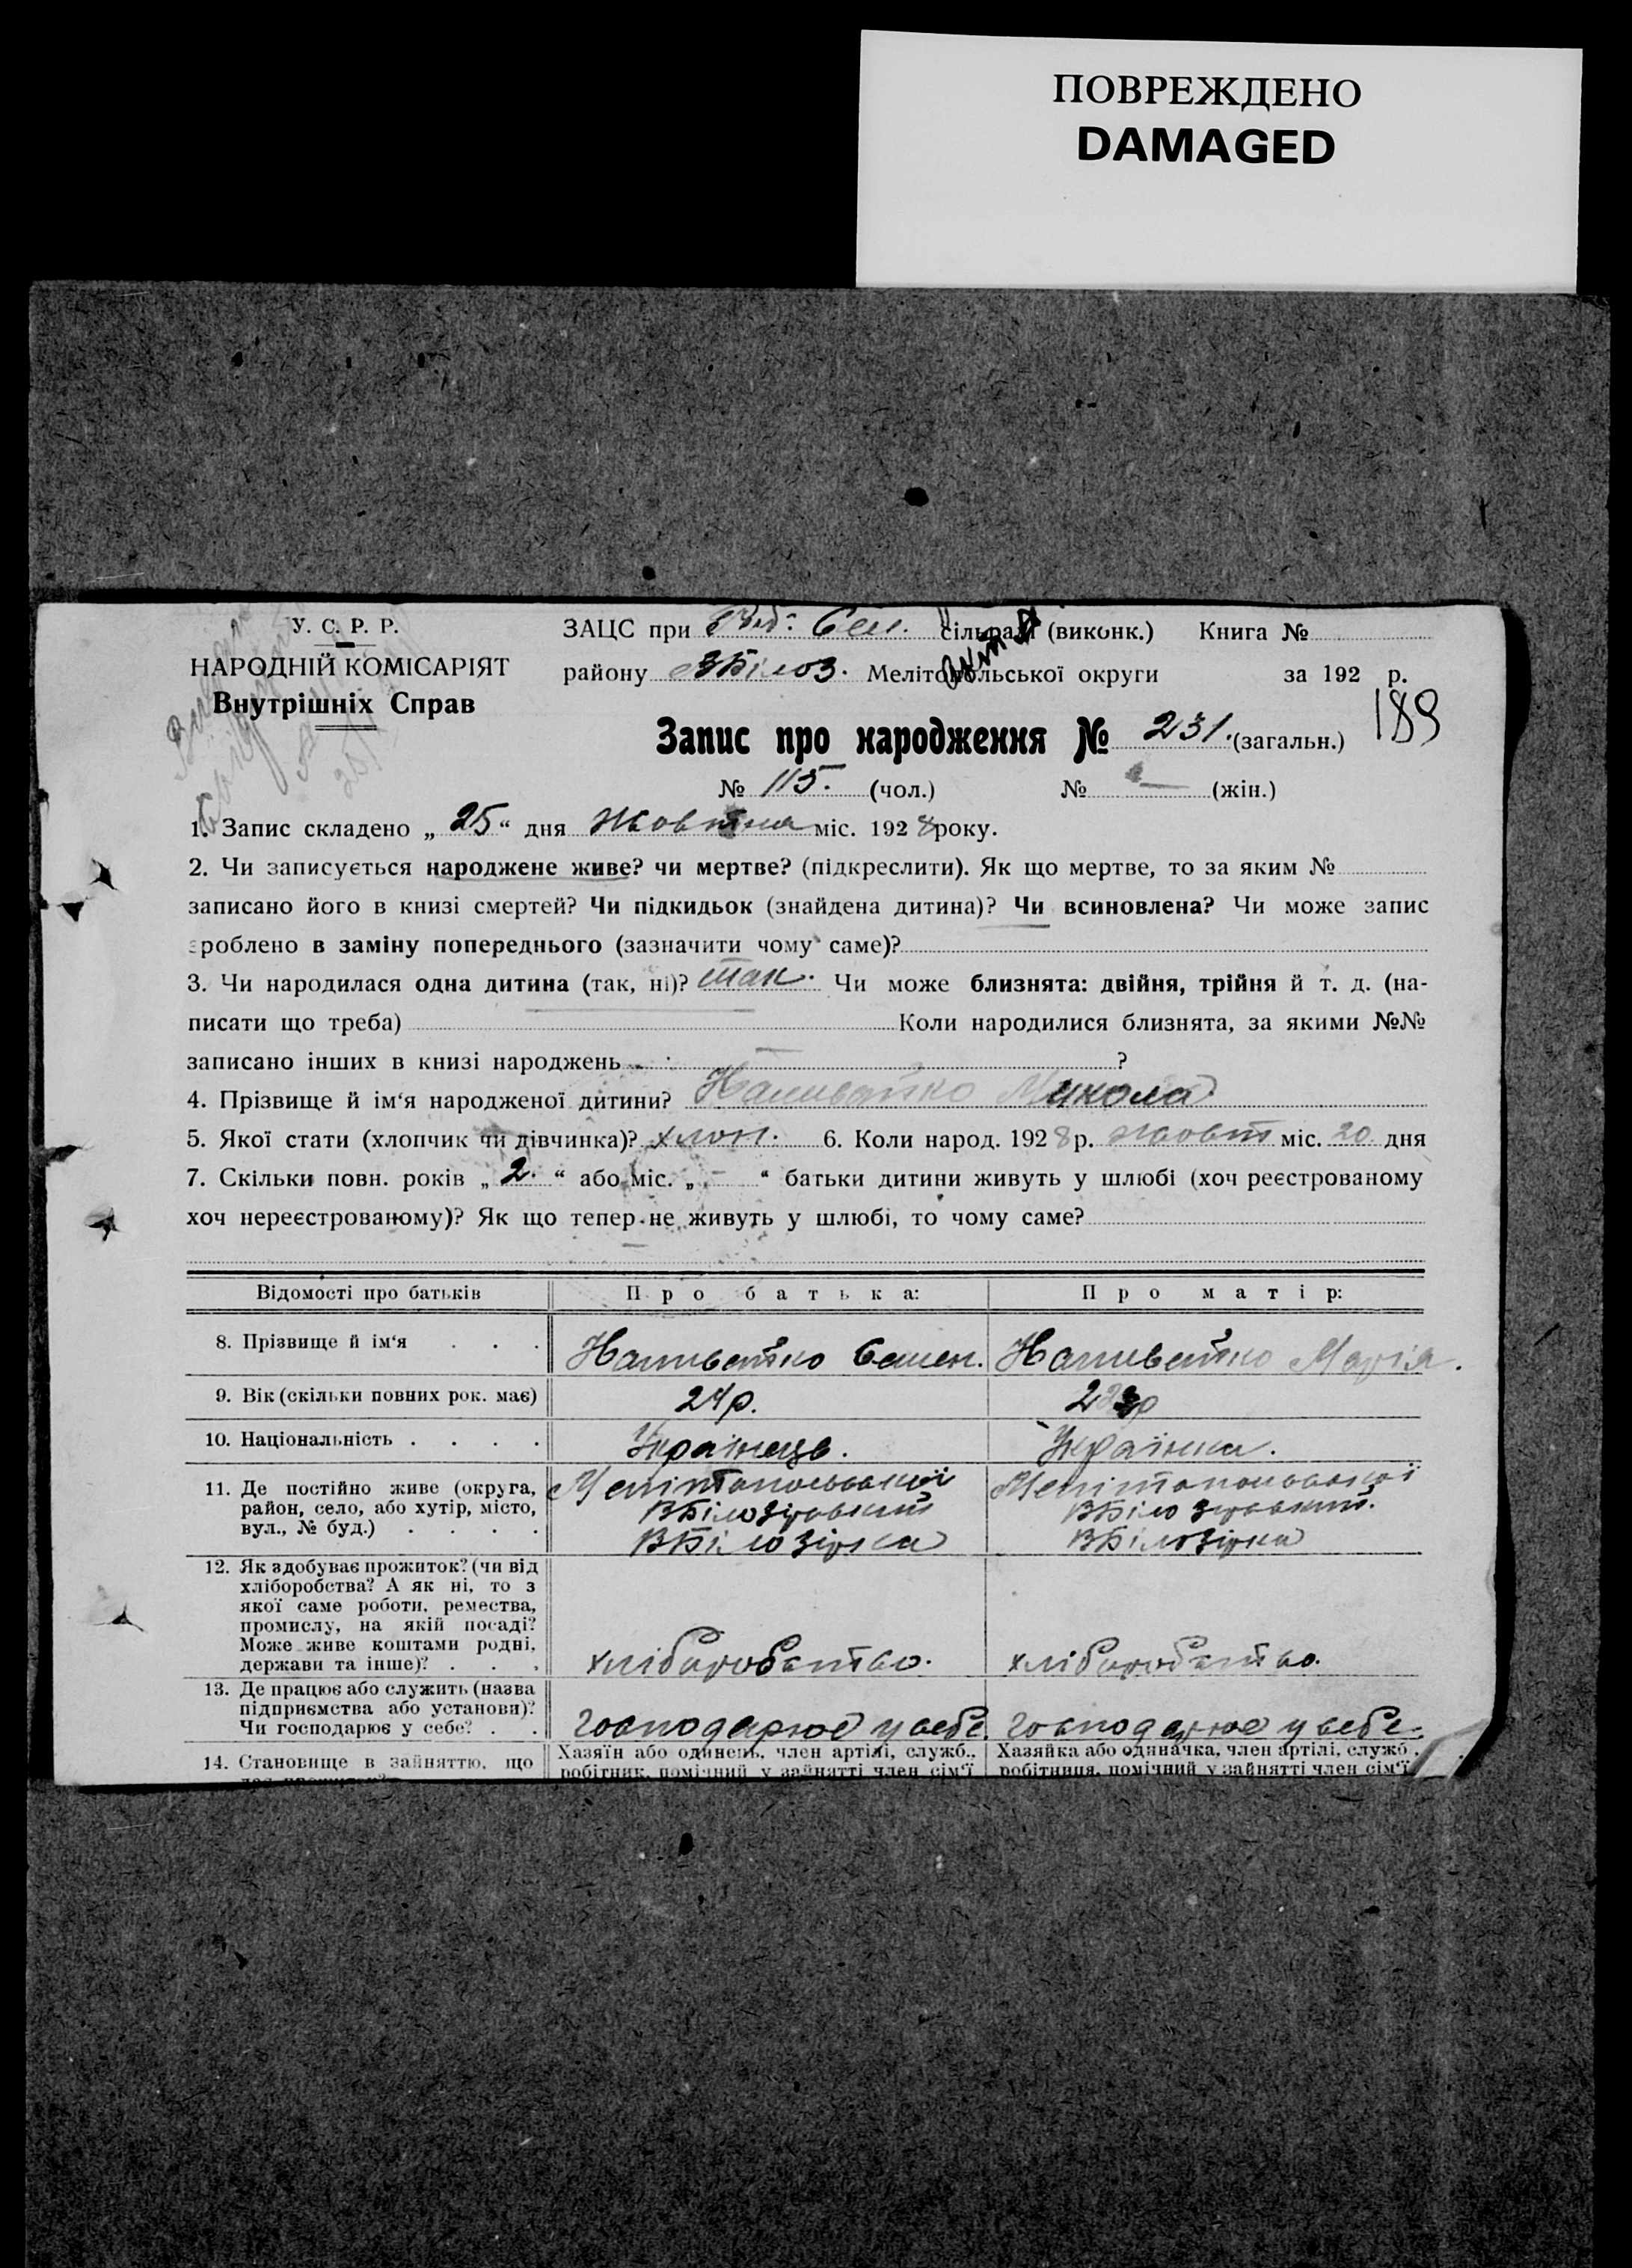 ПОВРЕЖДЕНО
DAMAGED
У. С. Р. Р.
НАРОДНІЙ КОМІСАРІЯТ
Внутрішніх Справ
ЗАЦС при сільради (виконк.) Книга №
району ВБілоз. Мелітопольської округи за 192 р.
189
Запис про народження № 231. (загальн.)
№ 115. (чол.) № — (жін.)
1. Запис складено „ 25 “ дня Жовтня міс. 1928 року.
2. Чи записується народжене живе? чи мертве? (підкреслити). Як що мертве, то за яким №
записано його в книзі смертей? Чи підкидьок (знайдена дитина)? Чи всиновлена? Чи може запис
зроблено в заміну попереднього (зазначити чому саме)?
3. Чи народилася одна дитина (так, ні)? так. Чи може близнята: двійня, трійня й т. д. (на-
писати що треба) Коли народилися близнята, за якими №№
записано інших в книзі народжень ?
4. Прізвище й ім‘я народженої дитини? Наливайко Микола
5. Якої стати (хлопчик чи дівчинка)? хлоп. 6. Коли народ. 1928 р. жовт міс. 20 дня
7. Скільки повн. років „ 2. “ або міс. „ — “ батьки дитини живуть у шлюбі (хоч реєстрованому
хоч нереєстрованому)? Як що тепер не живуть у шлюбі, то чому саме?
Відомості про батьків Про батька: Про матір:
8. Прізвище й ім‘я . . . Наливайко Семен. Наливайко Марія.
9. Вік (скільки повних рок. має) 24р.
10. Національність . . . . Українець. Українка.
11. Де постійно живе (округа, Мелітопольської Мелітопольської
район, село, або хутір, місто, ВБілозірський ВБілозірський.
вул., № буд.) . . . . ВБілозірка ВБілозірка
12. Як здобуває прожиток? (чи від
хліборобства? А як ні, то з
якої саме роботи, ремества,
промислу, на якій посаді?
Може живе коштами родні,
держави та інше)? . . . хліборобство. хліборобство.
13. Де працює або служить (назва
підприємства або установи)?
Чи господарює у себе? . . господарює у себе. господарює у себе.
14. Становище в зайняттю, що Хазяїн або одинець, член артілі, служб., Хазяйка або одиначка, член артілі, служб.,
робітник, помічний у зайнятті член сім‘ї робітниця, помічний у зайнятті член сім‘ї